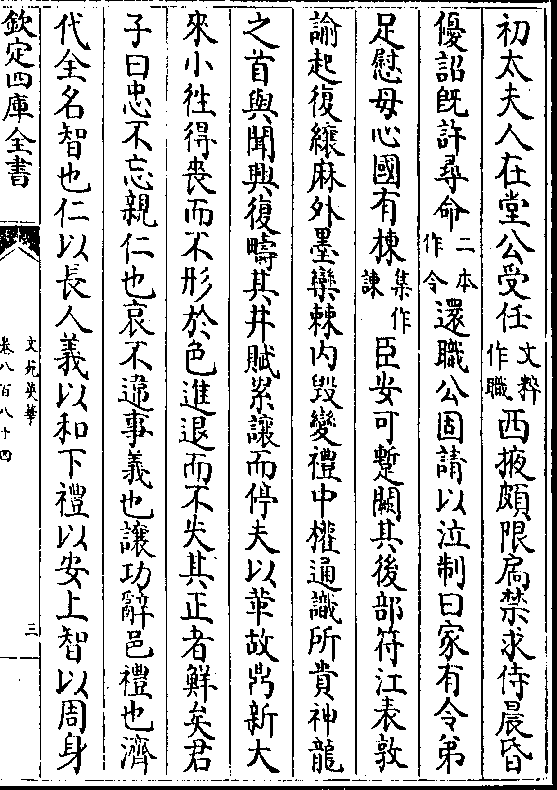 初太夫人在堂公受任文粹作職西掖頗限扄禁求侍晨昏
優詔旣許尋命二本作令還職公固請以泣制曰家有令弟
足慰母心國有棟集作諫臣安可蹔闕其後部符江表敦
諭起復縗麻外墨欒棘内毁變禮中權通識所貴神龍
之首與聞興復疇其井賦累讓而停夫以革故鼎新大
來小徃得喪而不形於色進退而不失其正者鮮矣君
子曰忠不忘親仁也哀不違事義也讓功辭邑禮也濟
代全名智也仁以長人義以和下禮以安上智以周身
欽定四庫全書
文苑英華
卷八百八十四
三